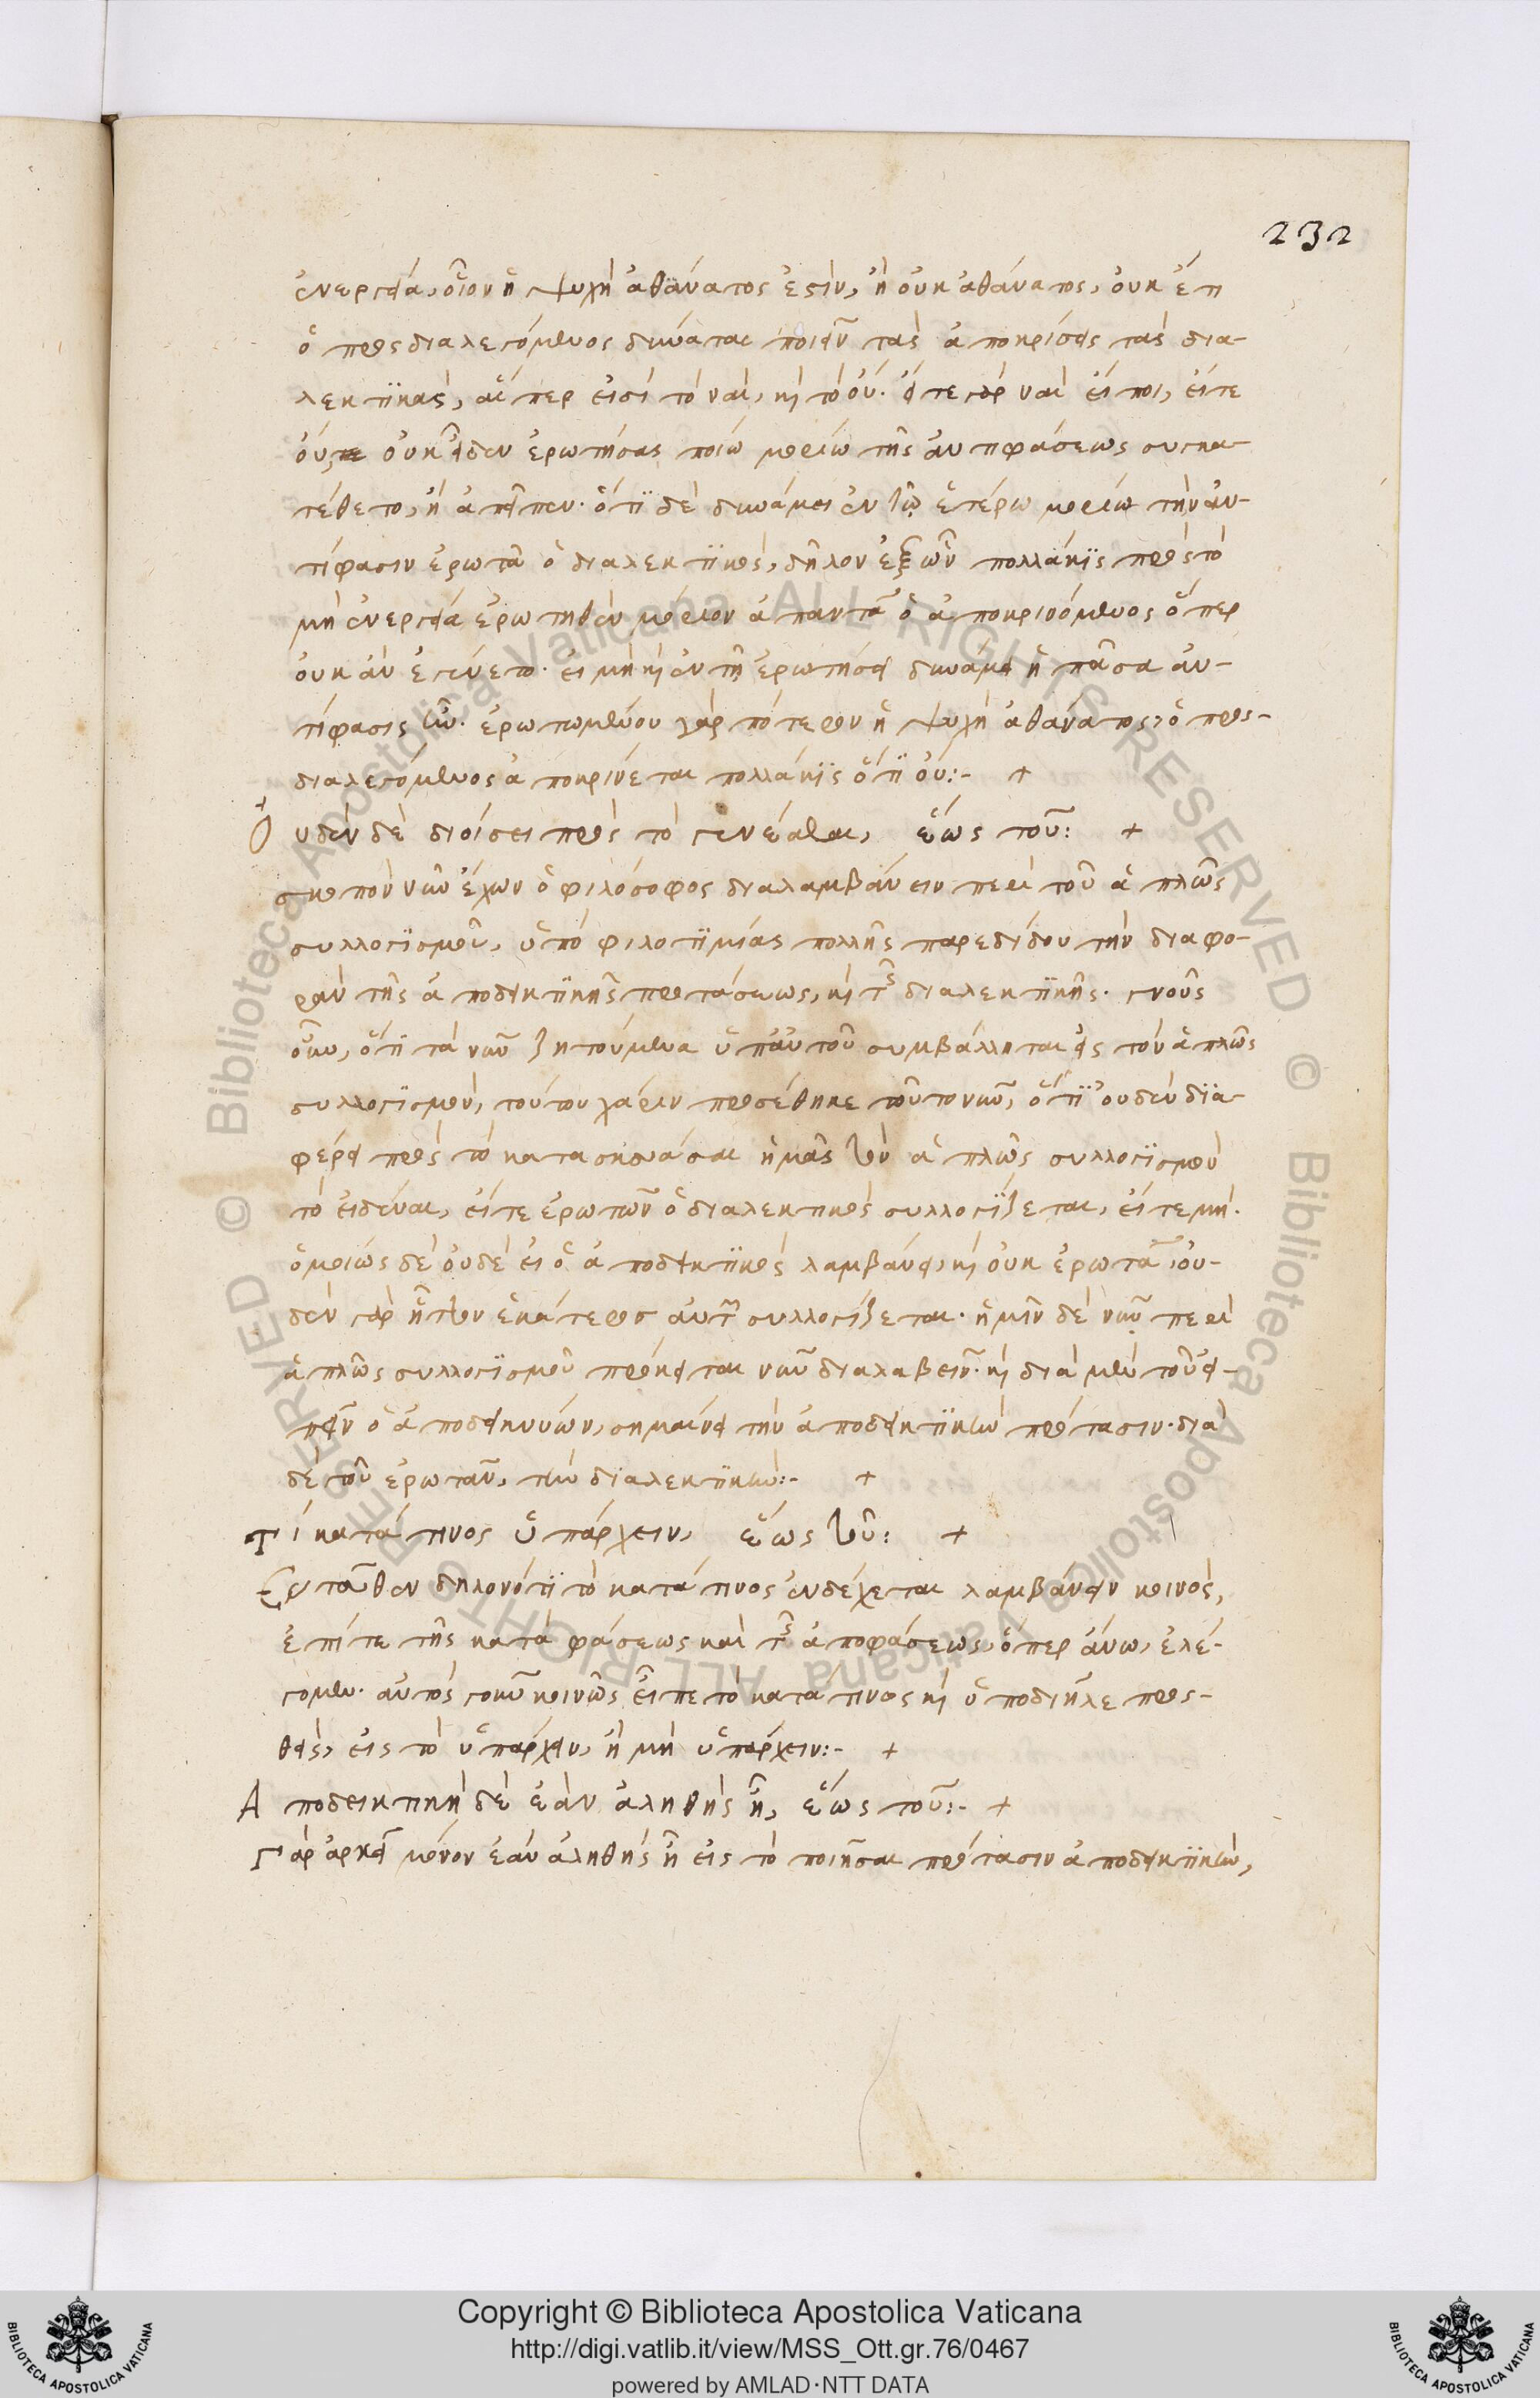 232
ἐνεργεία, οἷον ἡ ψυχὴ ἀθάνατος ἐστὶν, ἢ οὐκ ἀθάνατος, οὐκ ἔτι
ὁ προσδιαλεγόμενος δύναται ποιεῖν τὰς ἀποκρίσεις τὰς δια-
λεκτικὰς, αἵπερ εἰσὶ τὸ ναὶ, καὶ τὸ οὔ. εἴτε γὰρ ναὶ εἴποι, εἴτε
οὔ, οὐκ οἶδεν ἐρωτήσας ποίω μορίω τῆς ἀντιφάσεως συγκα-
τέθετο, ἢ ἀπεῖπεν. ὅτι δὲ δυνάμει ἐν τῶ ἑτέρω μορίω τὴν ἀν-
τίφασιν ἐρωτᾶ ὁ διαλεκτικὸς, δῆλον ἐξ ὧν πολλάκις πρὸς τὸ
μὴ ἐνεργεία ἐρωτηθὲν μόριον ἀπαντᾶ ὁ ἀποκρινόμενος ὅπερ
οὐκ ἂν ἐγένετο. εἰ μὴ καὶ ἐν τῆ ἐρωτήσει δυνάμει ἡ πᾶσα ἀν-
τίφασις ἦν. ἐρωτωμένου γὰρ πότερον ἡ ψυχὴ ἀθάνατος, ὁ προσ-
διαλεγόμενος ἀποκρίνεται πολλάκις ὅτι οὔ:- +
Οὐδὲν δὲ διοίσει πρὸς τὸ γενέσθαι, ἕως τοῦ: +
σκοπὸν νῦν ἔχων ὁ φιλόσοφος διαλαμβάνειν περὶ τοῦ ἁπλῶς
συλλογισμοῦ, ὑπὸ φιλοτιμίας πολλῆς παρεδίδου τὴν διαφο-
ρὰν τῆς ἀποδεικτικῆς προτάσεως, καὶ τῆς διαλεκτικῆς. γνοὺς
οὖν, ὅτι τὰ νῦν ζητούμενα ὑπ' αὐτοῦ συμβάλληται εἰς τὸν ἁπλῶς
συλλογισμὸν, τούτου χάριν προσέθηκε τοῦτο νῦν, ὅτι οὐδὲν δια-
φέρει πρὸς τὸ κατασκευάσαι ἡμᾶς τὸν ἁπλῶς συλλογισμὸν
τὸ εἰδέναι, εἴτε ἐρωτῶν ὁ διαλεκτικὸς συλλογίζεται, εἴτε μή.
ὁμοίως δὲ οὐδὲ εἰ ὁ ἀποδεικτικὸς λαμβάνει, καὶ οὐκ ἐρωτᾶ, οὐ-
δὲν γὰρ ἧττον ἑκάτερος αὐτῶν συλλογίζεται. ἡμῖν δὲ νῦν περὶ
ἁπλῶς συλλογισμοῦ πρόκειται νῦν διαλαβεῖν. καὶ διὰ μὲν τοῦ εἰ-
πεῖν ὁ ἀποδεικνύων, σημαίνει τὴν ἀποδεικτικὴν πρότασιν. διὰ
δὲ τοῦ ἐρωτᾶν, τὴν διαλεκτικήν:- +
Τὶ κατά τινος ὑπάρχειν, ἕως τοῦ: +
Ἐνταῦθεν δηλονότι τὸ κατά τινος ἐνδέχεται λαμβάνειν κοινὸς,
ἐπί τε τῆς καταφάσεως καὶ τῆς ἀποφάσεως, ὅπερ ἄνω, ἐλέ-
γομεν. αὐτὸς γοῦν κοινῶς εἶπε τὸ κατά τινος καὶ ὑποδιῆλε προσ-
θεὶς, εἰς τὸ ὑπάρχειν, ἢ μὴ ὑπάρχειν:- +
Ἀποδεικτικὴ δὲ ἐὰν ἀληθὴς ἦ, ἕως τοῦ:- +
Γὰρ ἀρκεῖ μόνον ἐὰν ἀληθὴς ἦ εἰς τὸ ποιῆσαι πρότασιν ἀποδεικτικὴν,
Copyright © Biblioteca Apostolica Vaticana
http://digi.vatlib.it/view/MSS_Ott.gr.76/0467
powered by AMLAD·NTT DATA